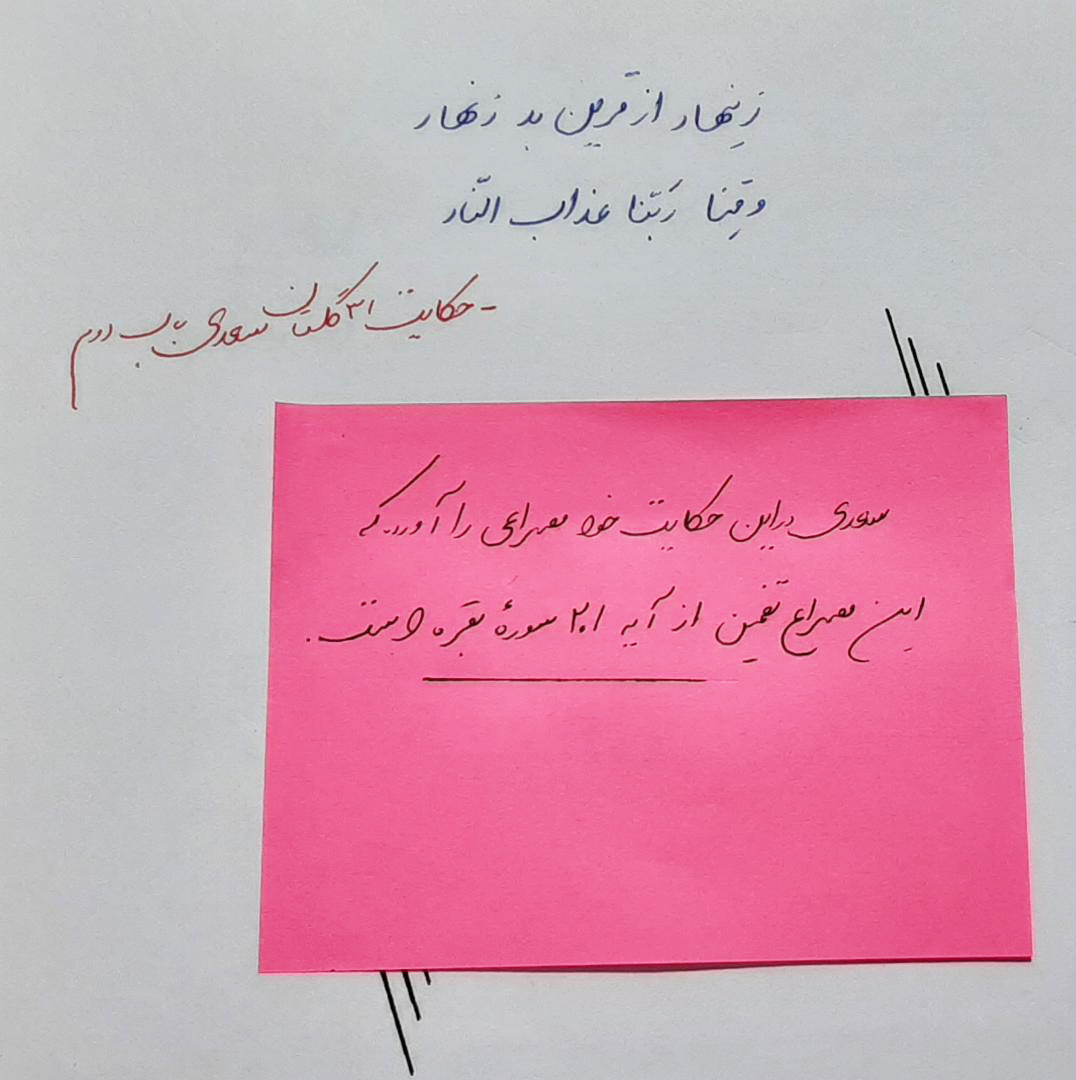 زِینهار از قرین بد زنهار
وَقِنا رَبَّنا عذاب النّار
- حکایت ۳۱ گلستان سعدی باب دوم
سعدی در این حکایت خود مصراعی را آورد که
این مصراع تضمین از آیه ۲۰۱ سورهٔ بقره است.